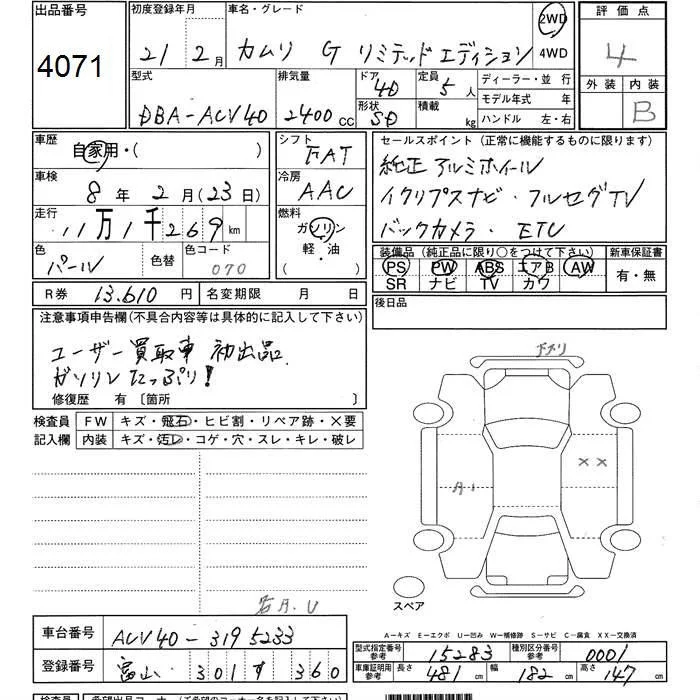 出品番号 初度登録年月 車名・グレード 2WD 4WD 評価点
4071 21 2月 カムリ G リミテッドエディション 4
型式 排気量 ドア 4D 定員 5人 ディーラー・並行 外装 内装
DBA-ACV40 2400cc 形状 SD 積載 kg モデル年式 年 B
ハンドル 左・右
車歴 自家用・( ) シフト FAT セールスポイント(正常に機能するものに限ります)
車検 8年2月(23日) 冷房 AAC 純正アルミホイール
イクリプスナビ・フルセグTV
走行 11万1千269km 燃料 ガソリン バックカメラ・ETC
軽・油
( )
色 パール 色替 色コード 070 装備品(純正品に限り○をつけて下さい) 新車保証書
PS PW ABS エアB AW 有・無
SR ナビ TV カワ
R券 13,610円 名変期限 月 日 後日品
注意事項申告欄(不具合内容等は具体的に記入して下さい)
ユーザー買取車 初出品
ガソリンたっぷり!
修復歴 有〔箇所 〕
検査員 FW キズ・飛石・ヒビ割・リペア跡・×要
記入欄 内装 キズ・汚レ・コゲ・穴・スレ・キレ・破レ
××
スペア
A-キズ E-エクボ U-凹み W-補修跡 S-サビ C-腐食 XX-交換済
車台番号 ACV40-3195233 型式指定番号 参考 15283 種別区分番号 参考 0001
登録番号 富山 301 す 360 車庫証明用 参考 長さ 481cm 幅 182cm 高さ 147cm
検査員 希望出品コーナー